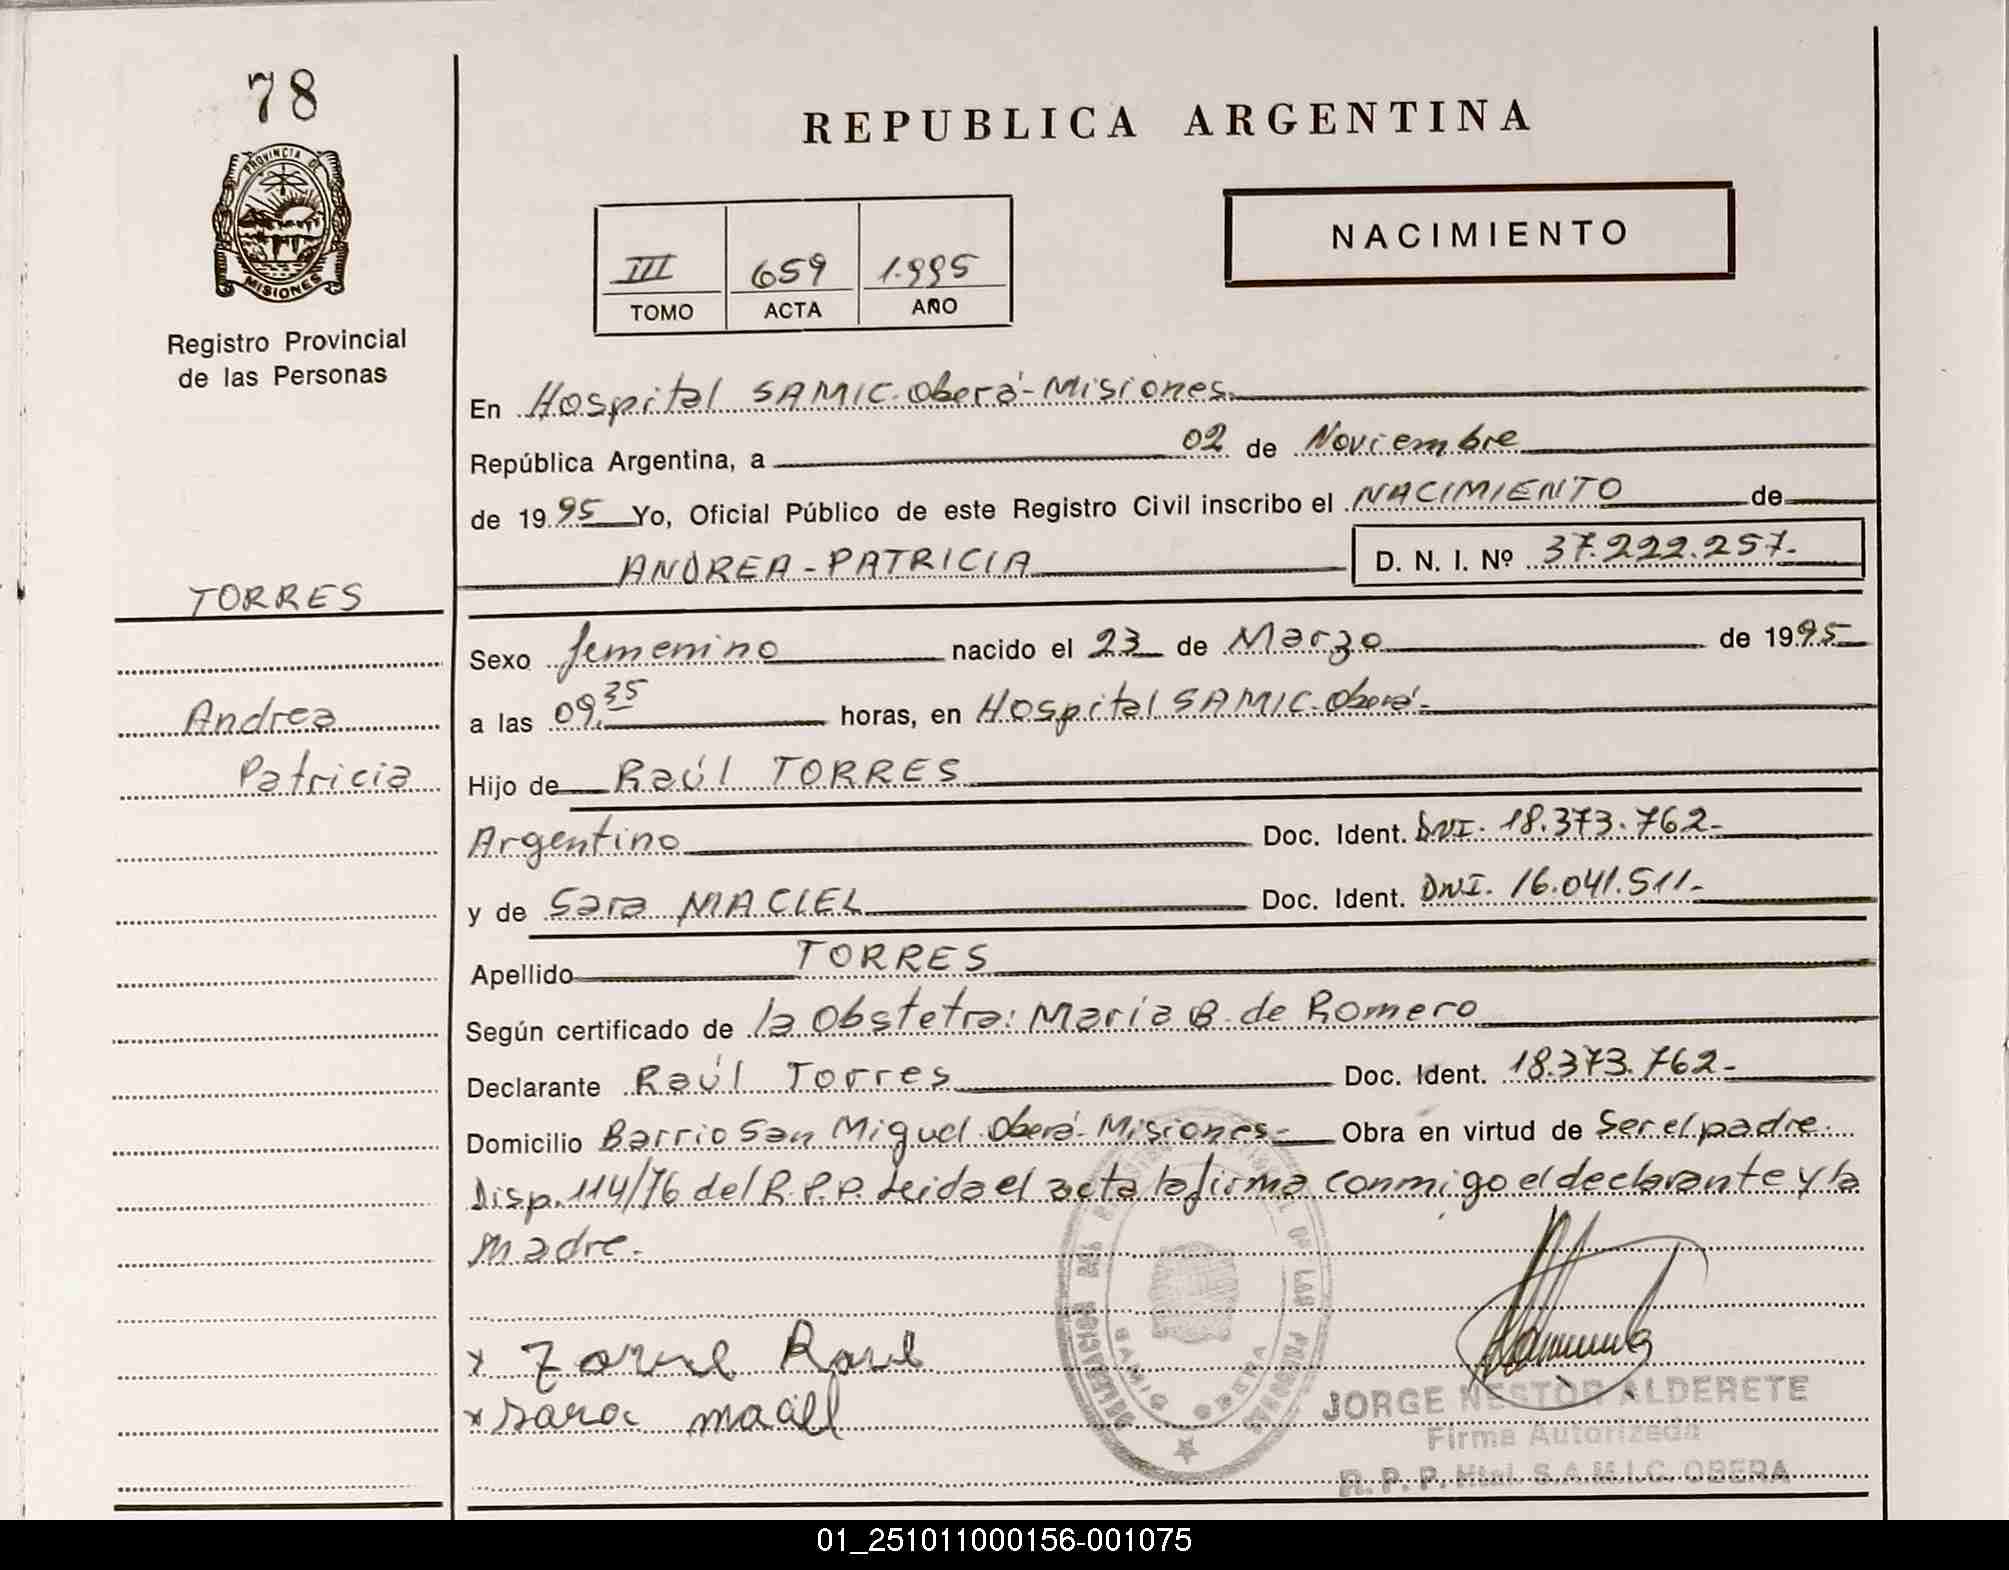 78
PROVINCIA DE
MISIONES
Registro Provincial
de las Personas
TORRES
Andrea
Patricia
REPUBLICA ARGENTINA
NACIMIENTO
III 659 1.995
TOMO ACTA AÑO
En Hospital SAMIC. Oberá - Misiones.
República Argentina, a 02 de Noviembre
de 1995 Yo, Oficial Público de este Registro Civil inscribo el NACIMIENTO de
ANDREA - PATRICIA D. N. I. Nº 37.222.257.-
Sexo femenino nacido el 23 de Marzo de 1995
a las 09,35 horas, en Hospital SAMIC. Oberá.-
Hijo de Raúl TORRES
Argentino Doc. Ident. DNI. 18.373.762.-
y de Sara MACIEL Doc. Ident. DNI. 16.041.511.-
Apellido TORRES
Según certificado de la Obstetra: María B. de Romero
Declarante Raúl Torres Doc. Ident. 18.373.762.-
Domicilio Barrio San Miguel Oberá - Misiones - Obra en virtud de Ser el padre.
Disp. 114/76 del R.P.P. Leida el acta la firma conmigo el declarante y la
Madre.-
x Torre Raul
x sara maciel
DELEGACION DEL REGISTRO PROVINCIAL DE LAS PERSONAS
SAMIC OBERA
JORGE NESTOR ALDERETE
Firma Autorizada
R. P. P. Htal. S.A.M.I.C. OBERA
01_251011000156-001075